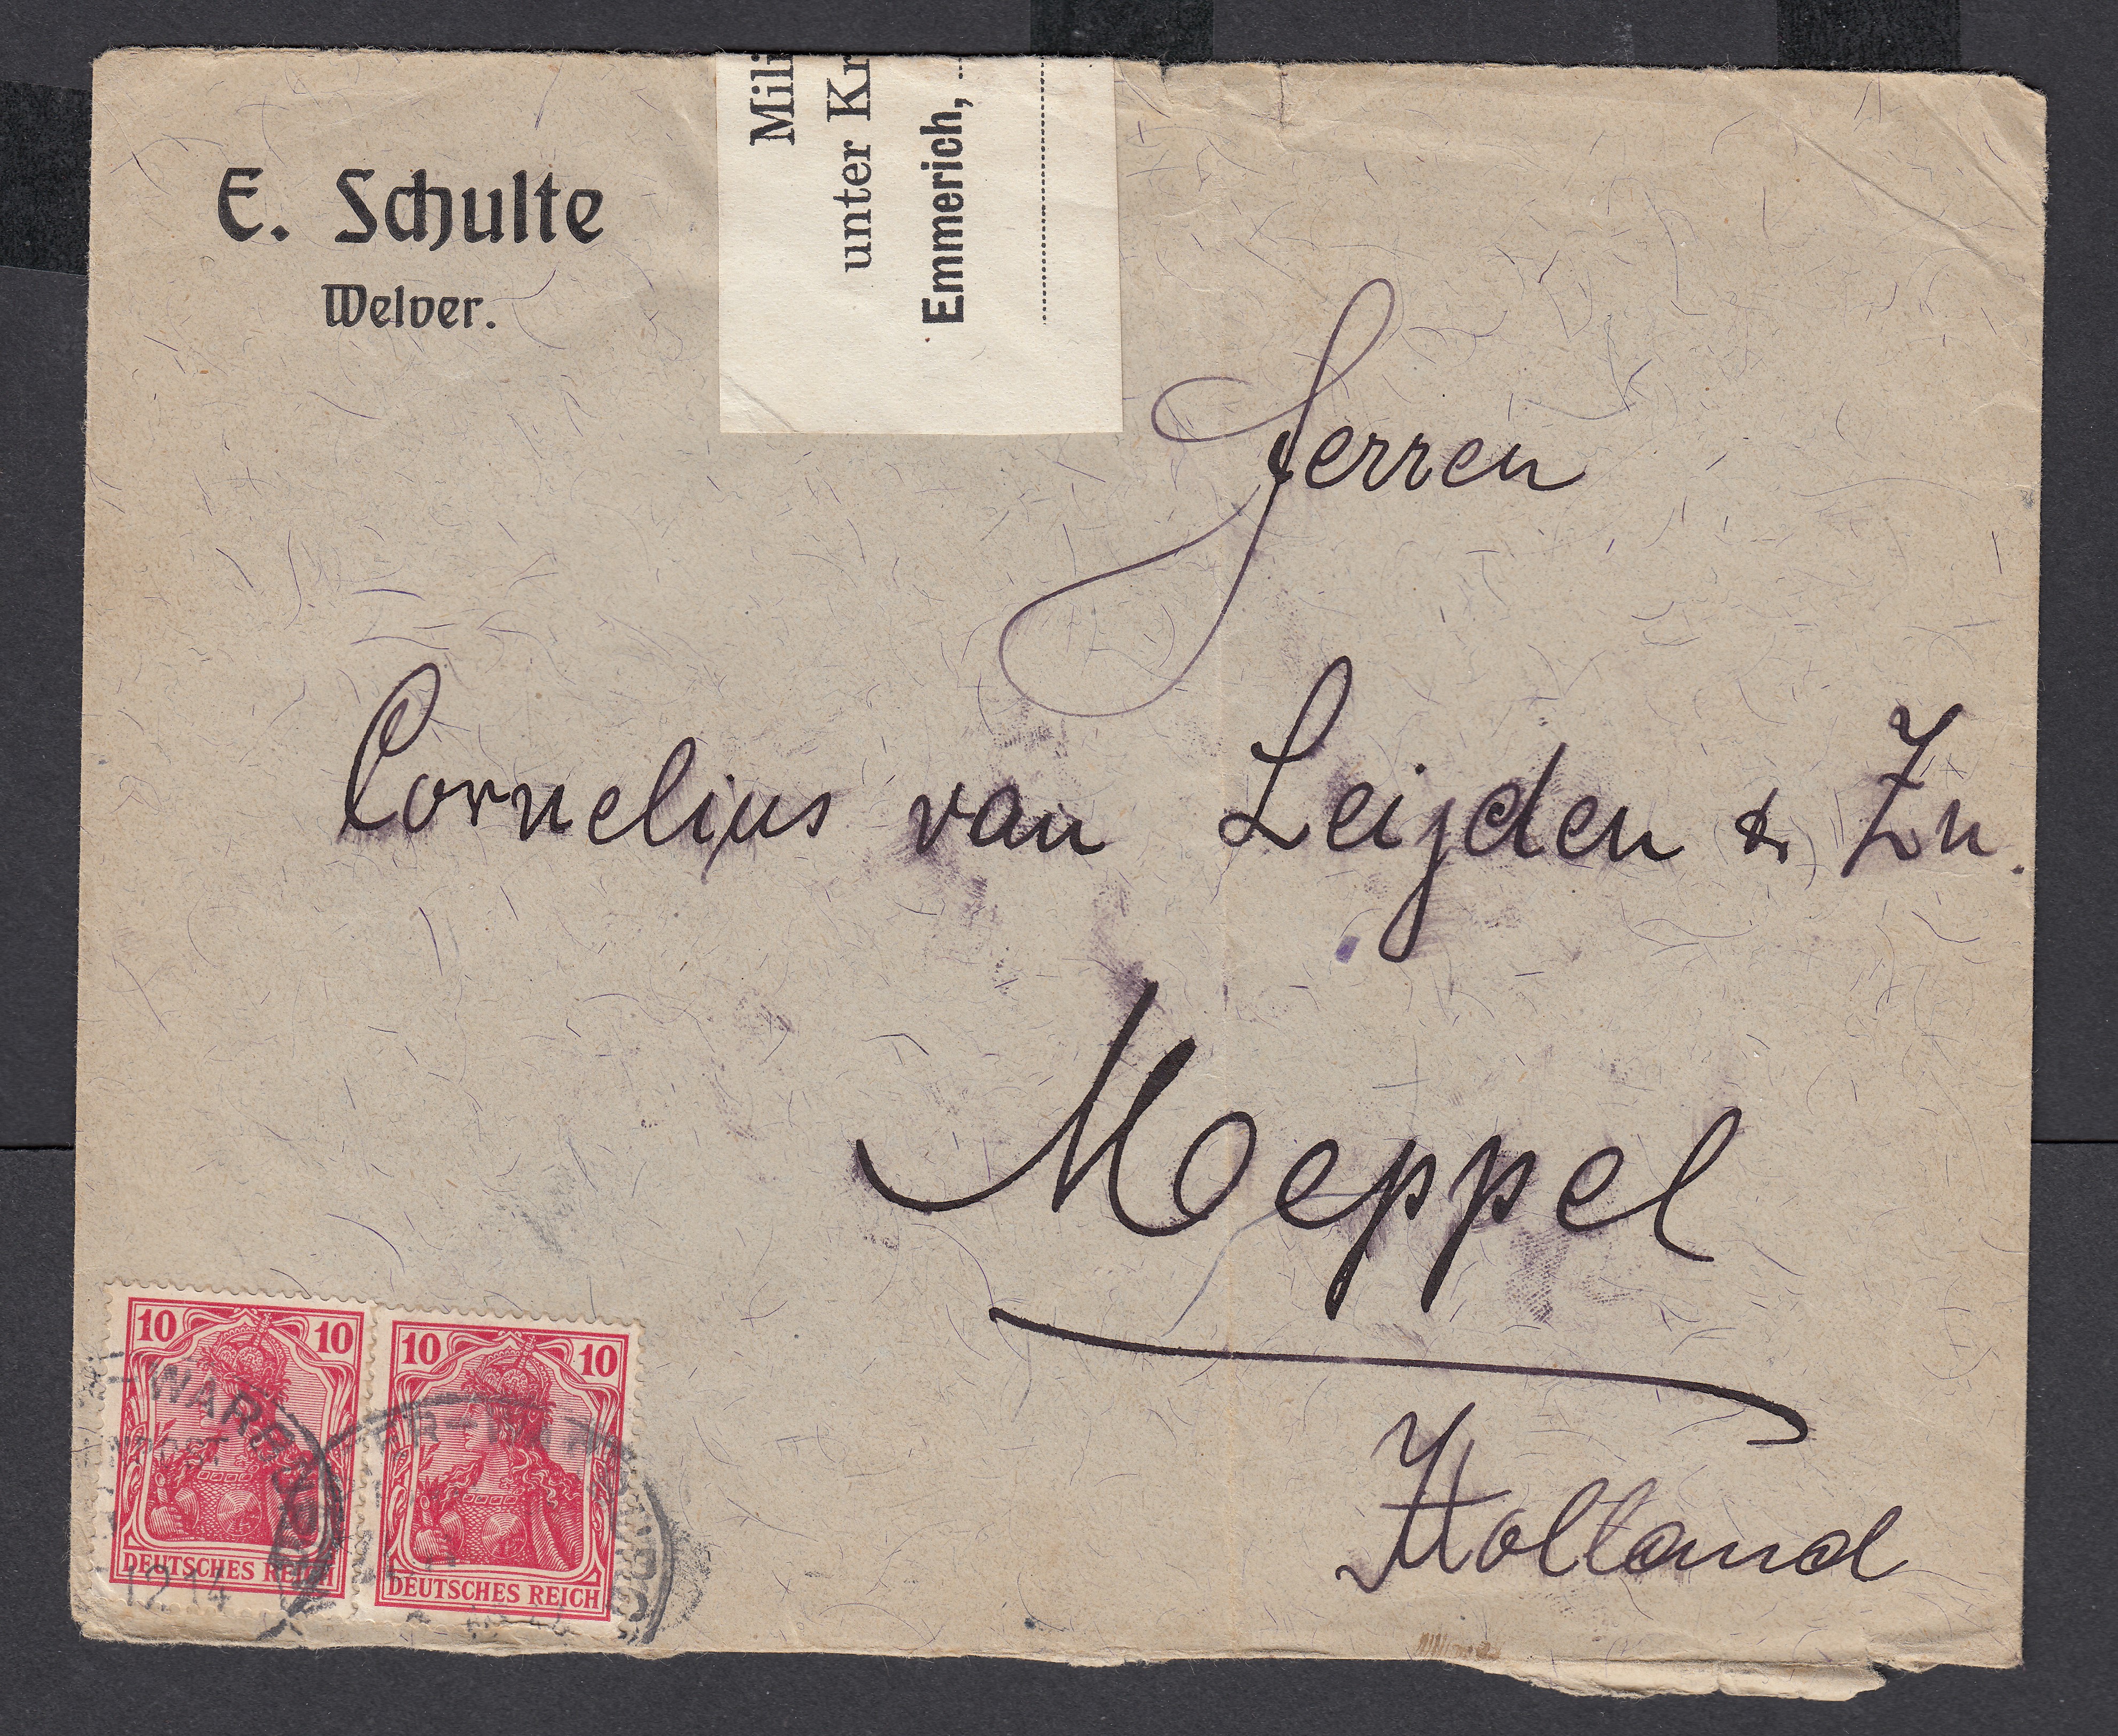 E. Schulte
Welver.
Mili
unter Kr
Emmerich,
Herren
Cornelius van Leijden & Zn.
Meppel
Holland
10 10
DEUTSCHES REICH
10 10
DEUTSCHES REICH
-WARBURG
12 14